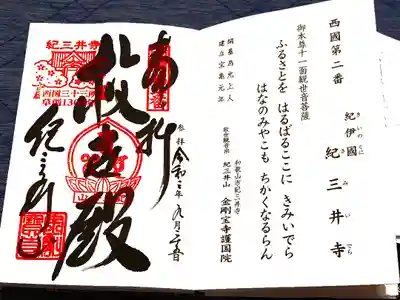 西國第二番
紀伊國 紀三井寺
きいのくに き み い でら
御本尊十一面観世音菩薩
ふるさとを はるばるここに きみいでら
はなのみやこも ちかくなるらん
開基為光上人
建立宝亀元年
和歌山市紀三井寺
救世観音宗 紀三井山 金剛宝寺護国院
奉拝
参拝 令和三年九月
救世殿
紀三井寺
紀三井寺
西国三十三所
草創1300年